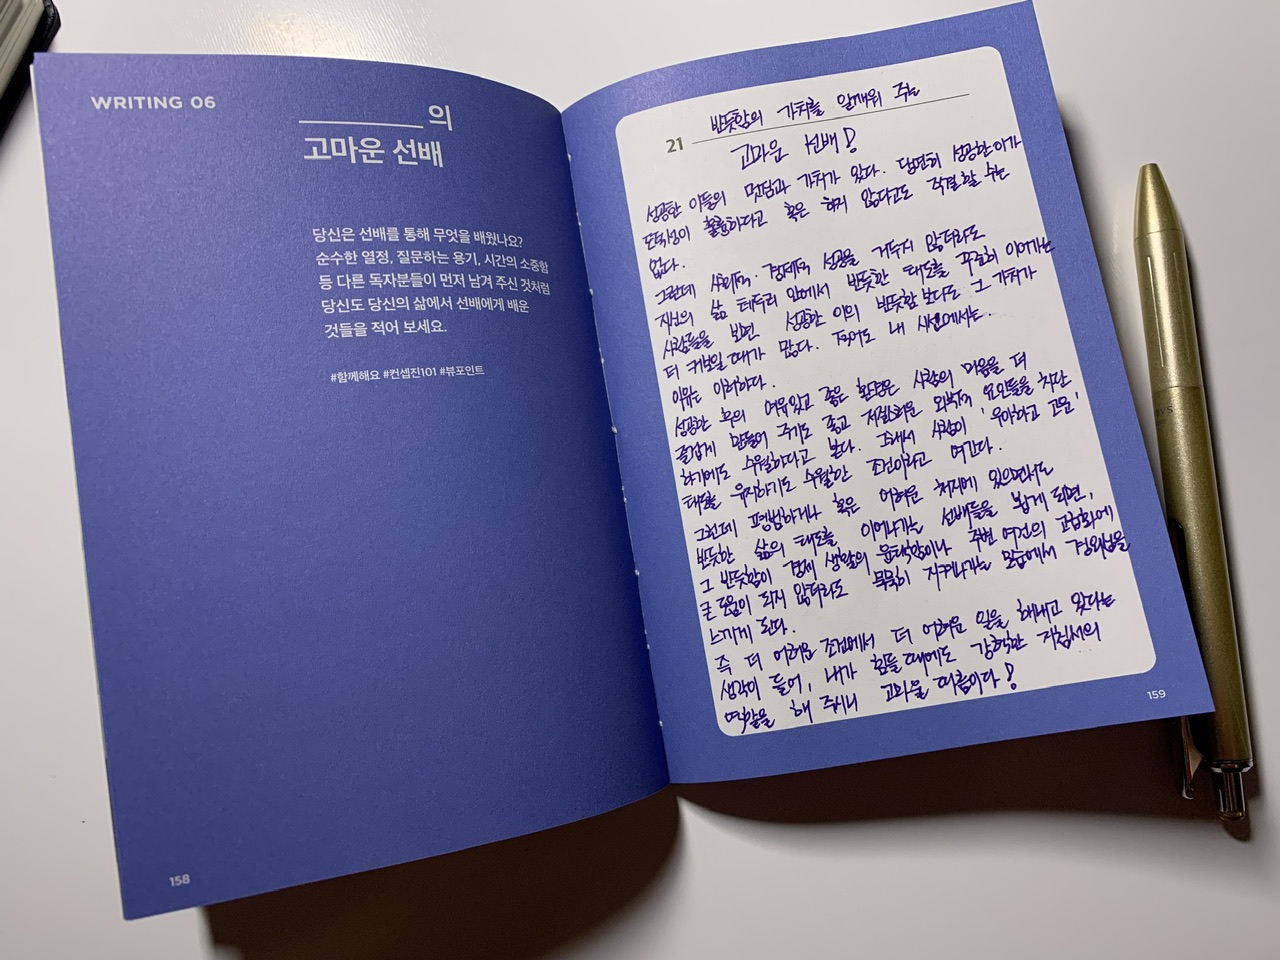 WRITING 06
의
고마운 선배
당신은 선배를 통해 무엇을 배웠나요?
순수한 열정, 질문하는 용기, 시간의 소중함
등 다른 독자분들이 먼저 남겨 주신 것처럼
당신도 당신의 삶에서 선배에게 배운
것들을 적어 보세요.
#함께해요 #컨셉진101 #뷰포인트
158
반듯함의 가치를 일깨워 주는
21
고마운 선배!
성공한 이들의 멋덤과 가치가 있다. 당연히 성공한 이가
도덕성이 훌륭하다고 혹은 하지 않다고도 직결할 수는
없다.
그런데 사회적·경제적 성공을 거두지 않더라도
자신의 삶 테두리 안에서 반듯한 태도를 꾸준히 이어가는
사람들을 보면 성공한 이의 반듯함보다도 그 가치가
더 커보일 때가 많다. 적어도 내 시선에서는.
이유는 이러하다.
성공한 후의 여유있고 좋은 환경은 사람의 마음을 더
즐겁게 만들어 주기도 좋고 저절스러운 외부적 요인들을 차단
하기에도 수월하다고 본다. 그래서 사람이 '우아하고 고운'
태도를 유지하기도 수월한 조건이라고 여긴다.
그런데 평범하거나 혹은 어려운 처지에 있으면서도
반듯한 삶의 태도를 이어나가는 선배들을 뵙게 되면,
그 반듯함이 경제 생활의 윤택함이나 주변 여건의 고급화에
큰 도움이 되지 않더라도 묵묵히 지켜나가는 모습에서 경외심을
느끼게 된다.
즉 더 어려운 조건에서 더 어려운 일을 해내고 있다는
생각이 들어, 내가 힘들 때에도 강력한 지침서의
역할을 해 주시니 고마울 따름이다!
159